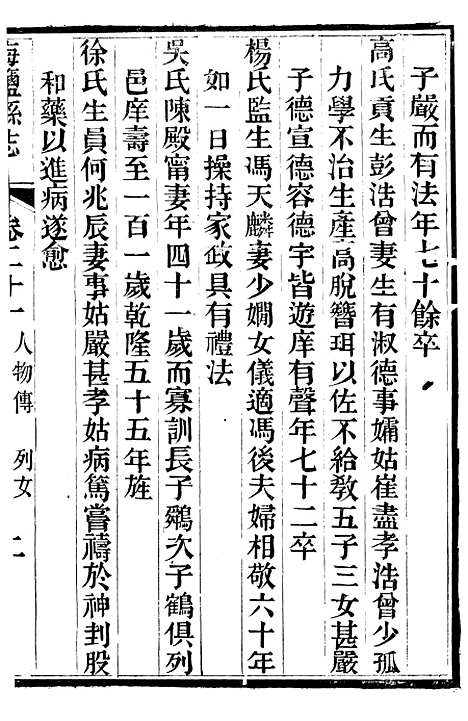 子嚴而有法年七十餘卒
高氏貢生彭浩曾妻生有淑德事孀姑崔盡孝浩曾少孤
力學不治生產高脫簪珥以佐不給教五子三女甚嚴
子德宣德容德宇皆遊庠有聲年七十二卒
楊氏監生馮天麟妻少嫻女儀適馮後夫婦相敬六十年
如一日操持家政具有禮法
吳氏陳殿甯妻年四十一歲而寡訓長子鶚次子鶴俱列
邑庠壽至一百一歲乾隆五十五年旌
徐氏生員何兆辰妻事姑嚴甚孝姑病篤嘗禱於神刲股
和藥以進病遂愈
海鹽縣志 卷二十一 人物傳 列女 二